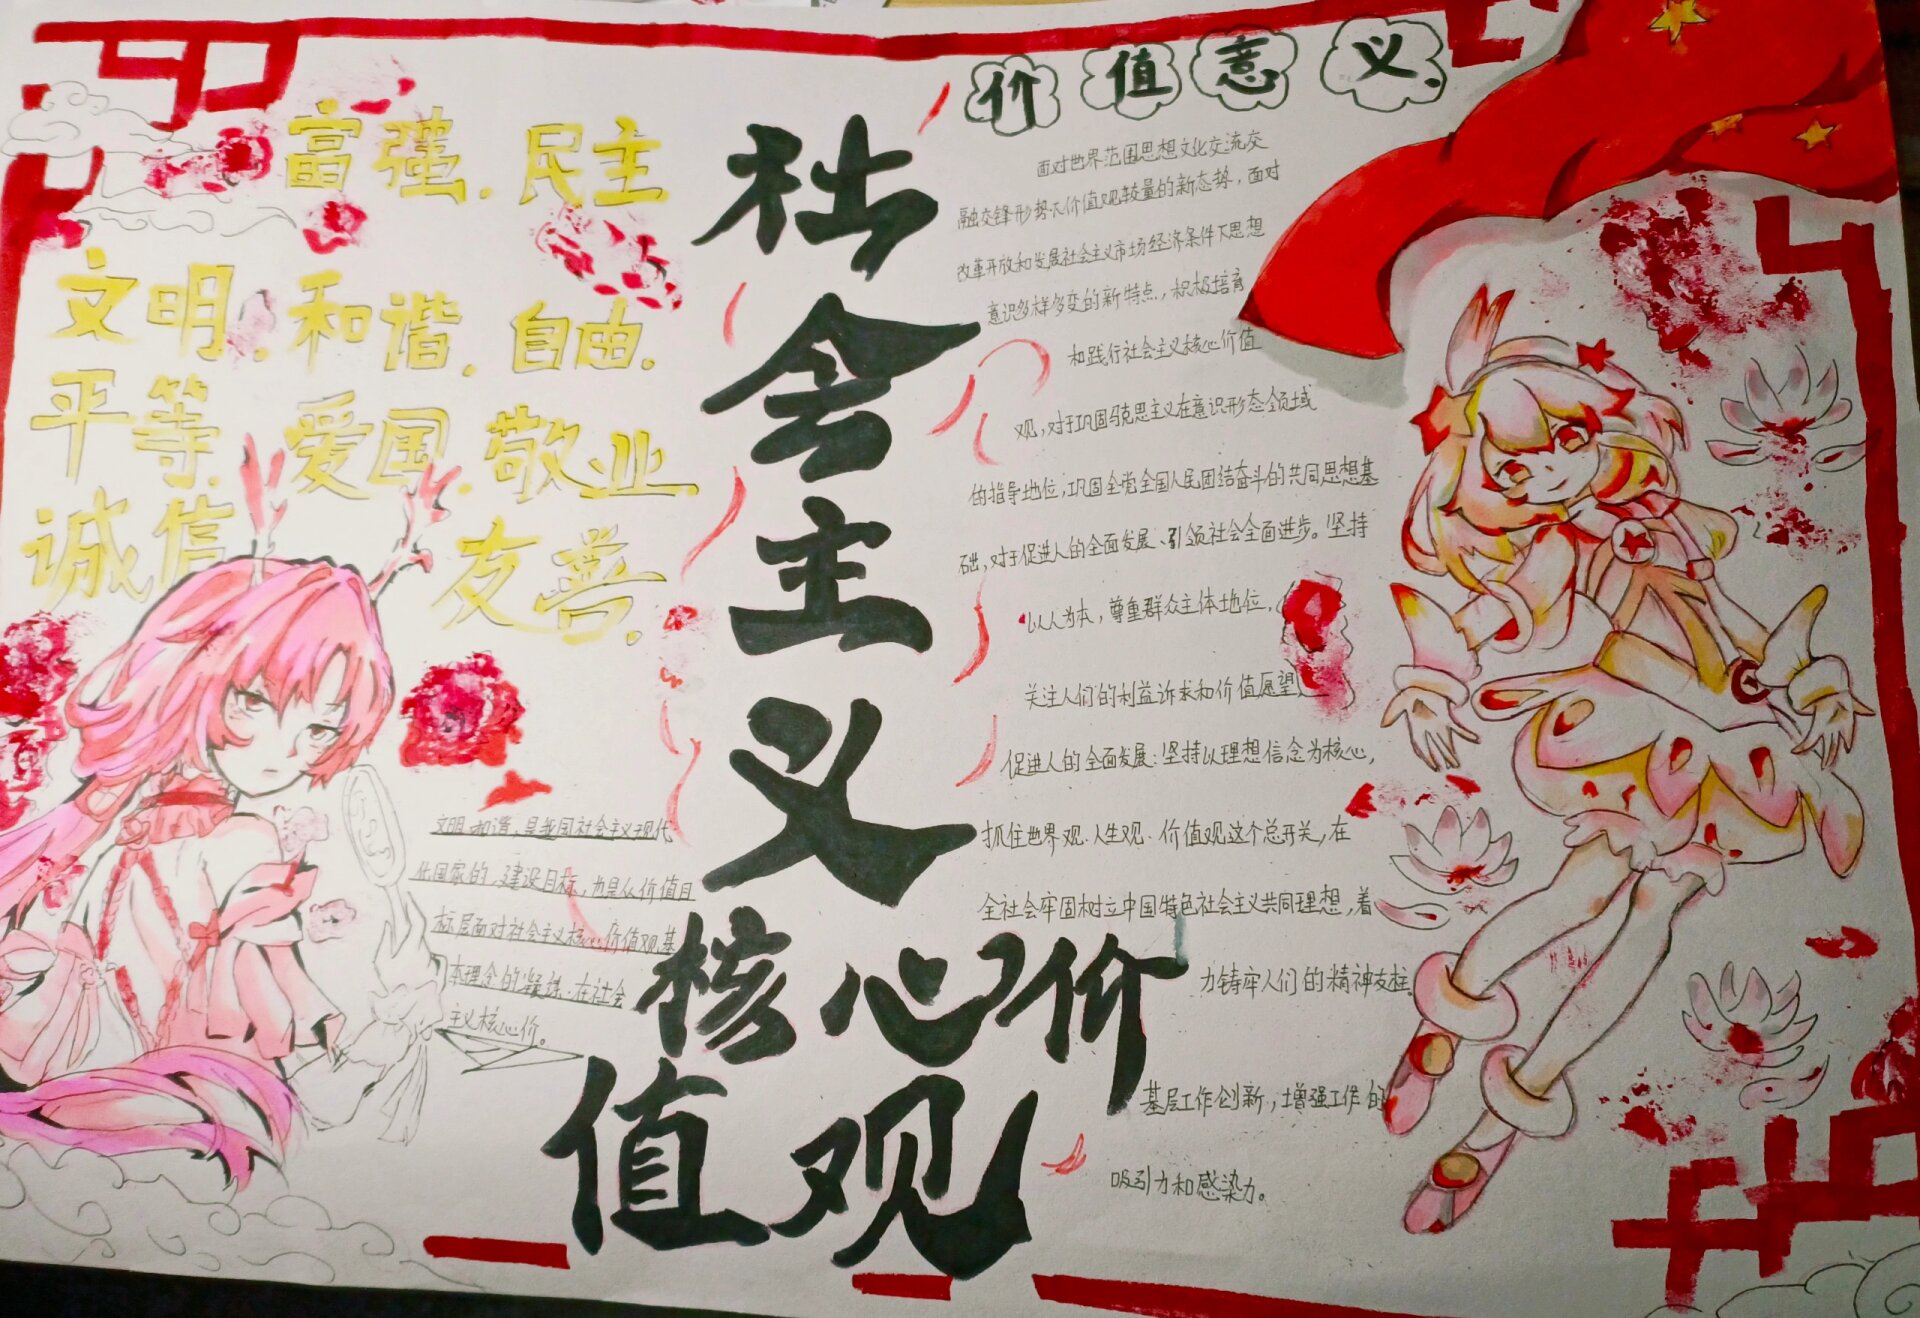 富强.民主
文明.和谐.自由.
平等.爱国.敬业.
诚信 友善.
社会主义
核心价
值观
文明.和谐,是我国社会主义现代
化国家的.建设目标,也是从价值目
标层面对社会主义核心价值观基
本理念的凝练.在社会
主义核心价.
价值意义.
面对世界范围思想文化交流交
融交锋形势下价值观较量的新态势,面对
改革开放和发展社会主义市场经济条件下思想
意识多样多变的新特点,积极培育
和践行社会主义核心价值
观,对于巩固马克思主义在意识形态领域
的指导地位,巩固全党全国人民团结奋斗的共同思想基
础,对于促进人的全面发展、引领社会全面进步。坚持
以人为本,尊重群众主体地位,
关注人们的利益诉求和价值愿望,
促进人的全面发展:坚持以理想信念为核心,
抓住世界观.人生观.价值观这个总开关,在
全社会牢固树立中国特色社会主义共同理想,着
力铸牢人们的精神支柱.
基层工作创新,增强工作的
吸引力和感染力。